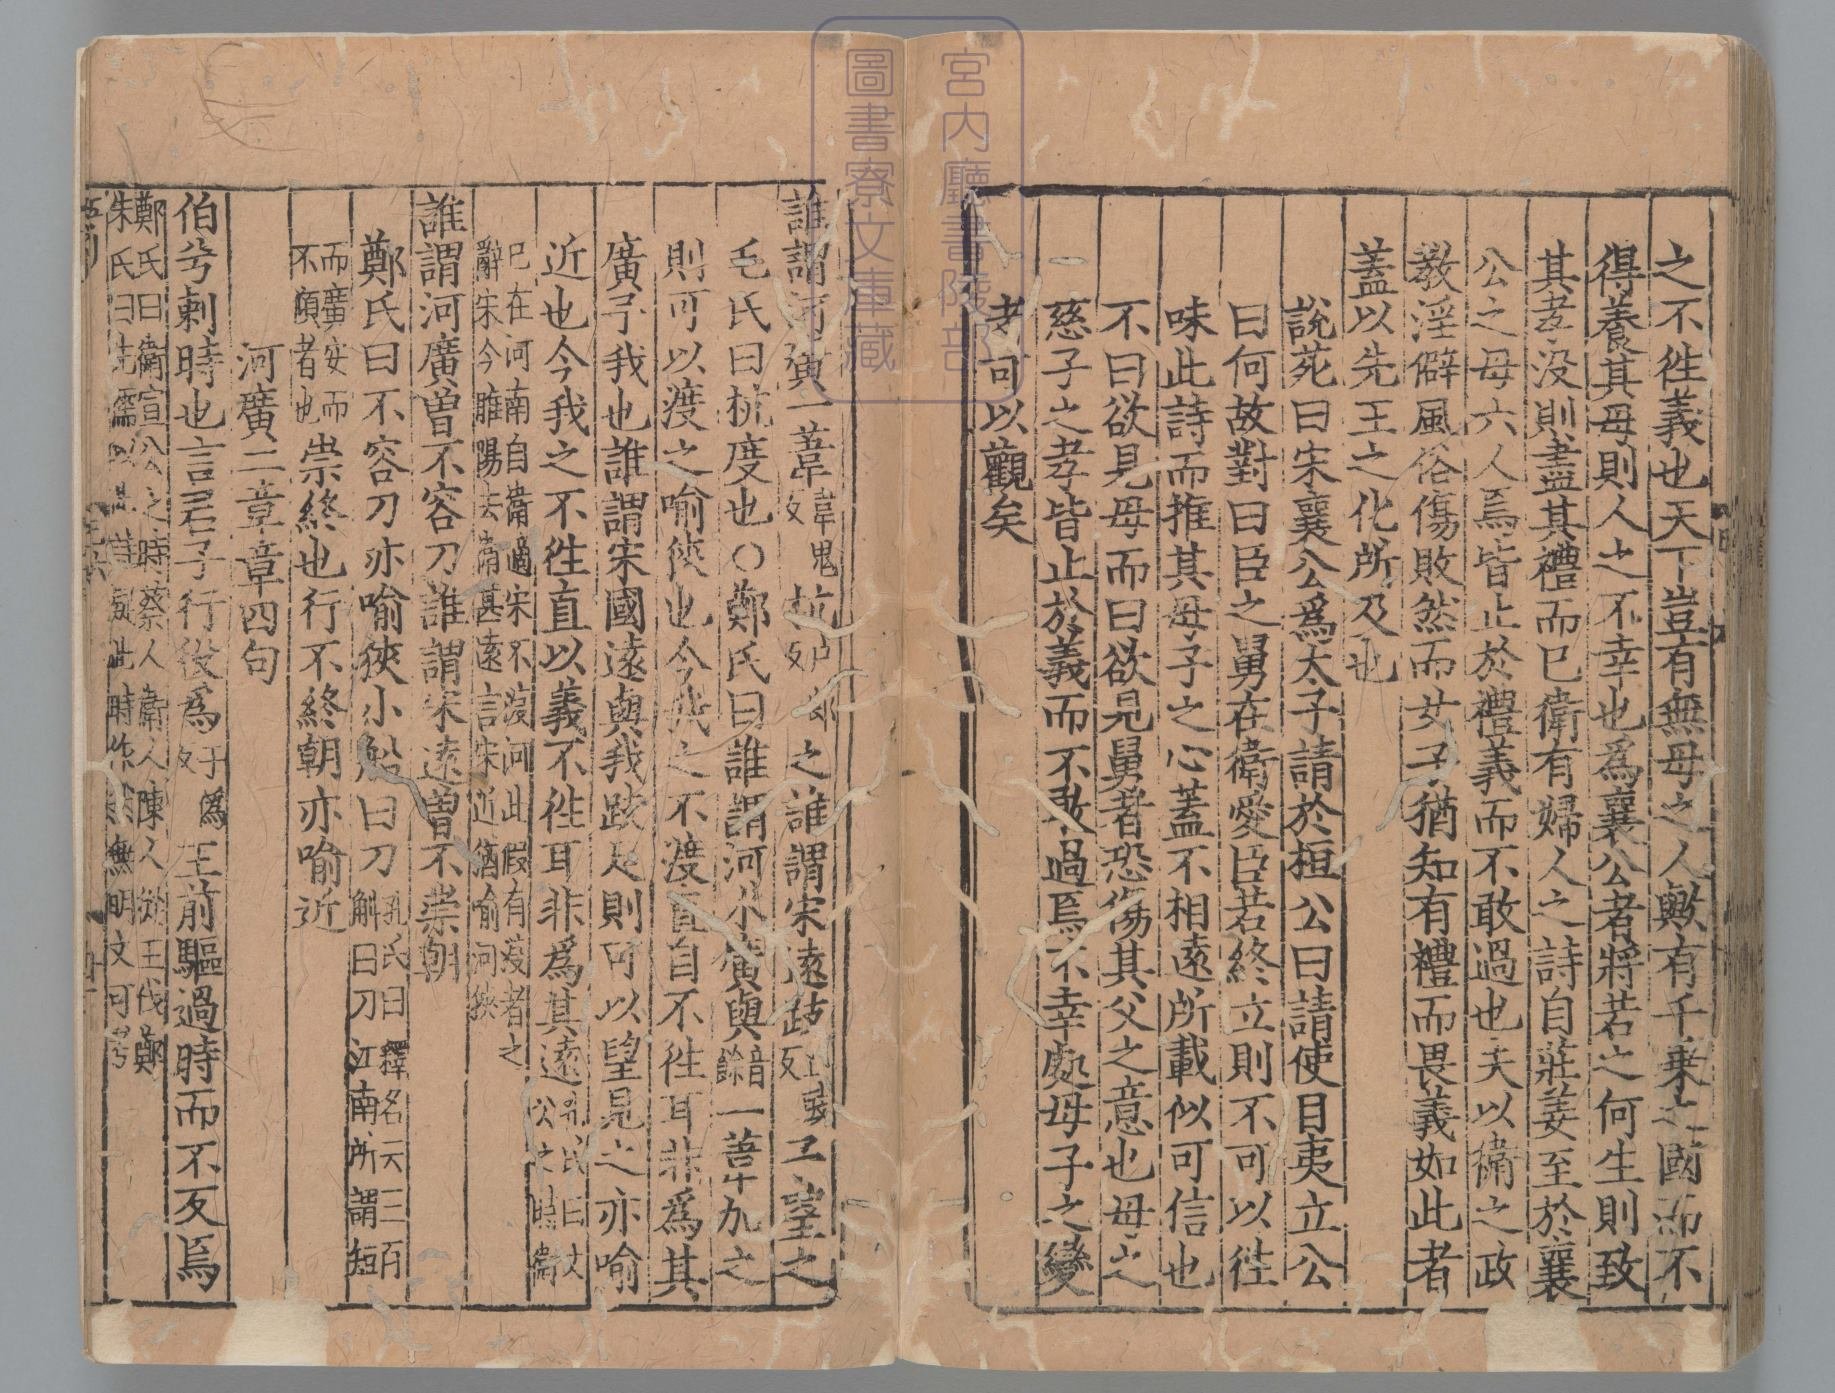 之不徃義也天下豈有無母之人歟有千乗之國而不
得養其母則人之不幸也爲襄公者將若之何生則致
其孝没則盡其禮而已衛有婦人之詩自莊姜至於襄
公之母六人焉皆止於禮義而不敢過也夫以衛之政
敎淫僻風俗傷敗然而女子猶知有禮而畏義如此者
蓋以先王之化所及也
說苑曰宋襄公爲太子請於桓公曰請使目夷立公
曰何故對曰臣之舅在衛愛臣若終立則不可以徃
味此詩而推其母子之心蓋不相逺所載似可信也
不曰欲見母而曰欲見舅者恐傷其父之意也母之
慈子之孝皆止於義而不敢過焉不幸處母子之變
者可以觀矣
誰謂河廣一葦韋鬼反杭户郎反之誰謂宋逺跂丘豉反予望之
毛氏曰杭度也○鄭氏曰誰謂河水廣與音餘一葦加之
則可以渡之喻狹也今我之不渡直自不徃耳非爲其
廣予我也誰謂宋國逺與我跂足則可以望見之亦喻
近也今我之不徃直以義不徃耳非爲其逺孔氏曰文公之時衛
已在河南自衛適宋不渡河此假有渡者之
辭宋今睢陽去衛甚逺言宋近猶喻河狹
誰謂河廣曾不容刀誰謂宋逺曾不崇朝
鄭氏曰不容刀亦喻狹小船曰刀孔氏曰釋名云三百斛曰刀江南所謂短
而廣安而不傾者也崇終也行不終朝亦喻近
河廣二章章四句
伯兮刺時也言君子行役爲于僞反王前驅過時而不反焉
鄭氏曰衛宣公之時蔡人衛人陳人從王伐鄭
朱氏曰先儒以此詩爲此時作然無明文可考
宮内廳書陵部
圖書寮文庫藏